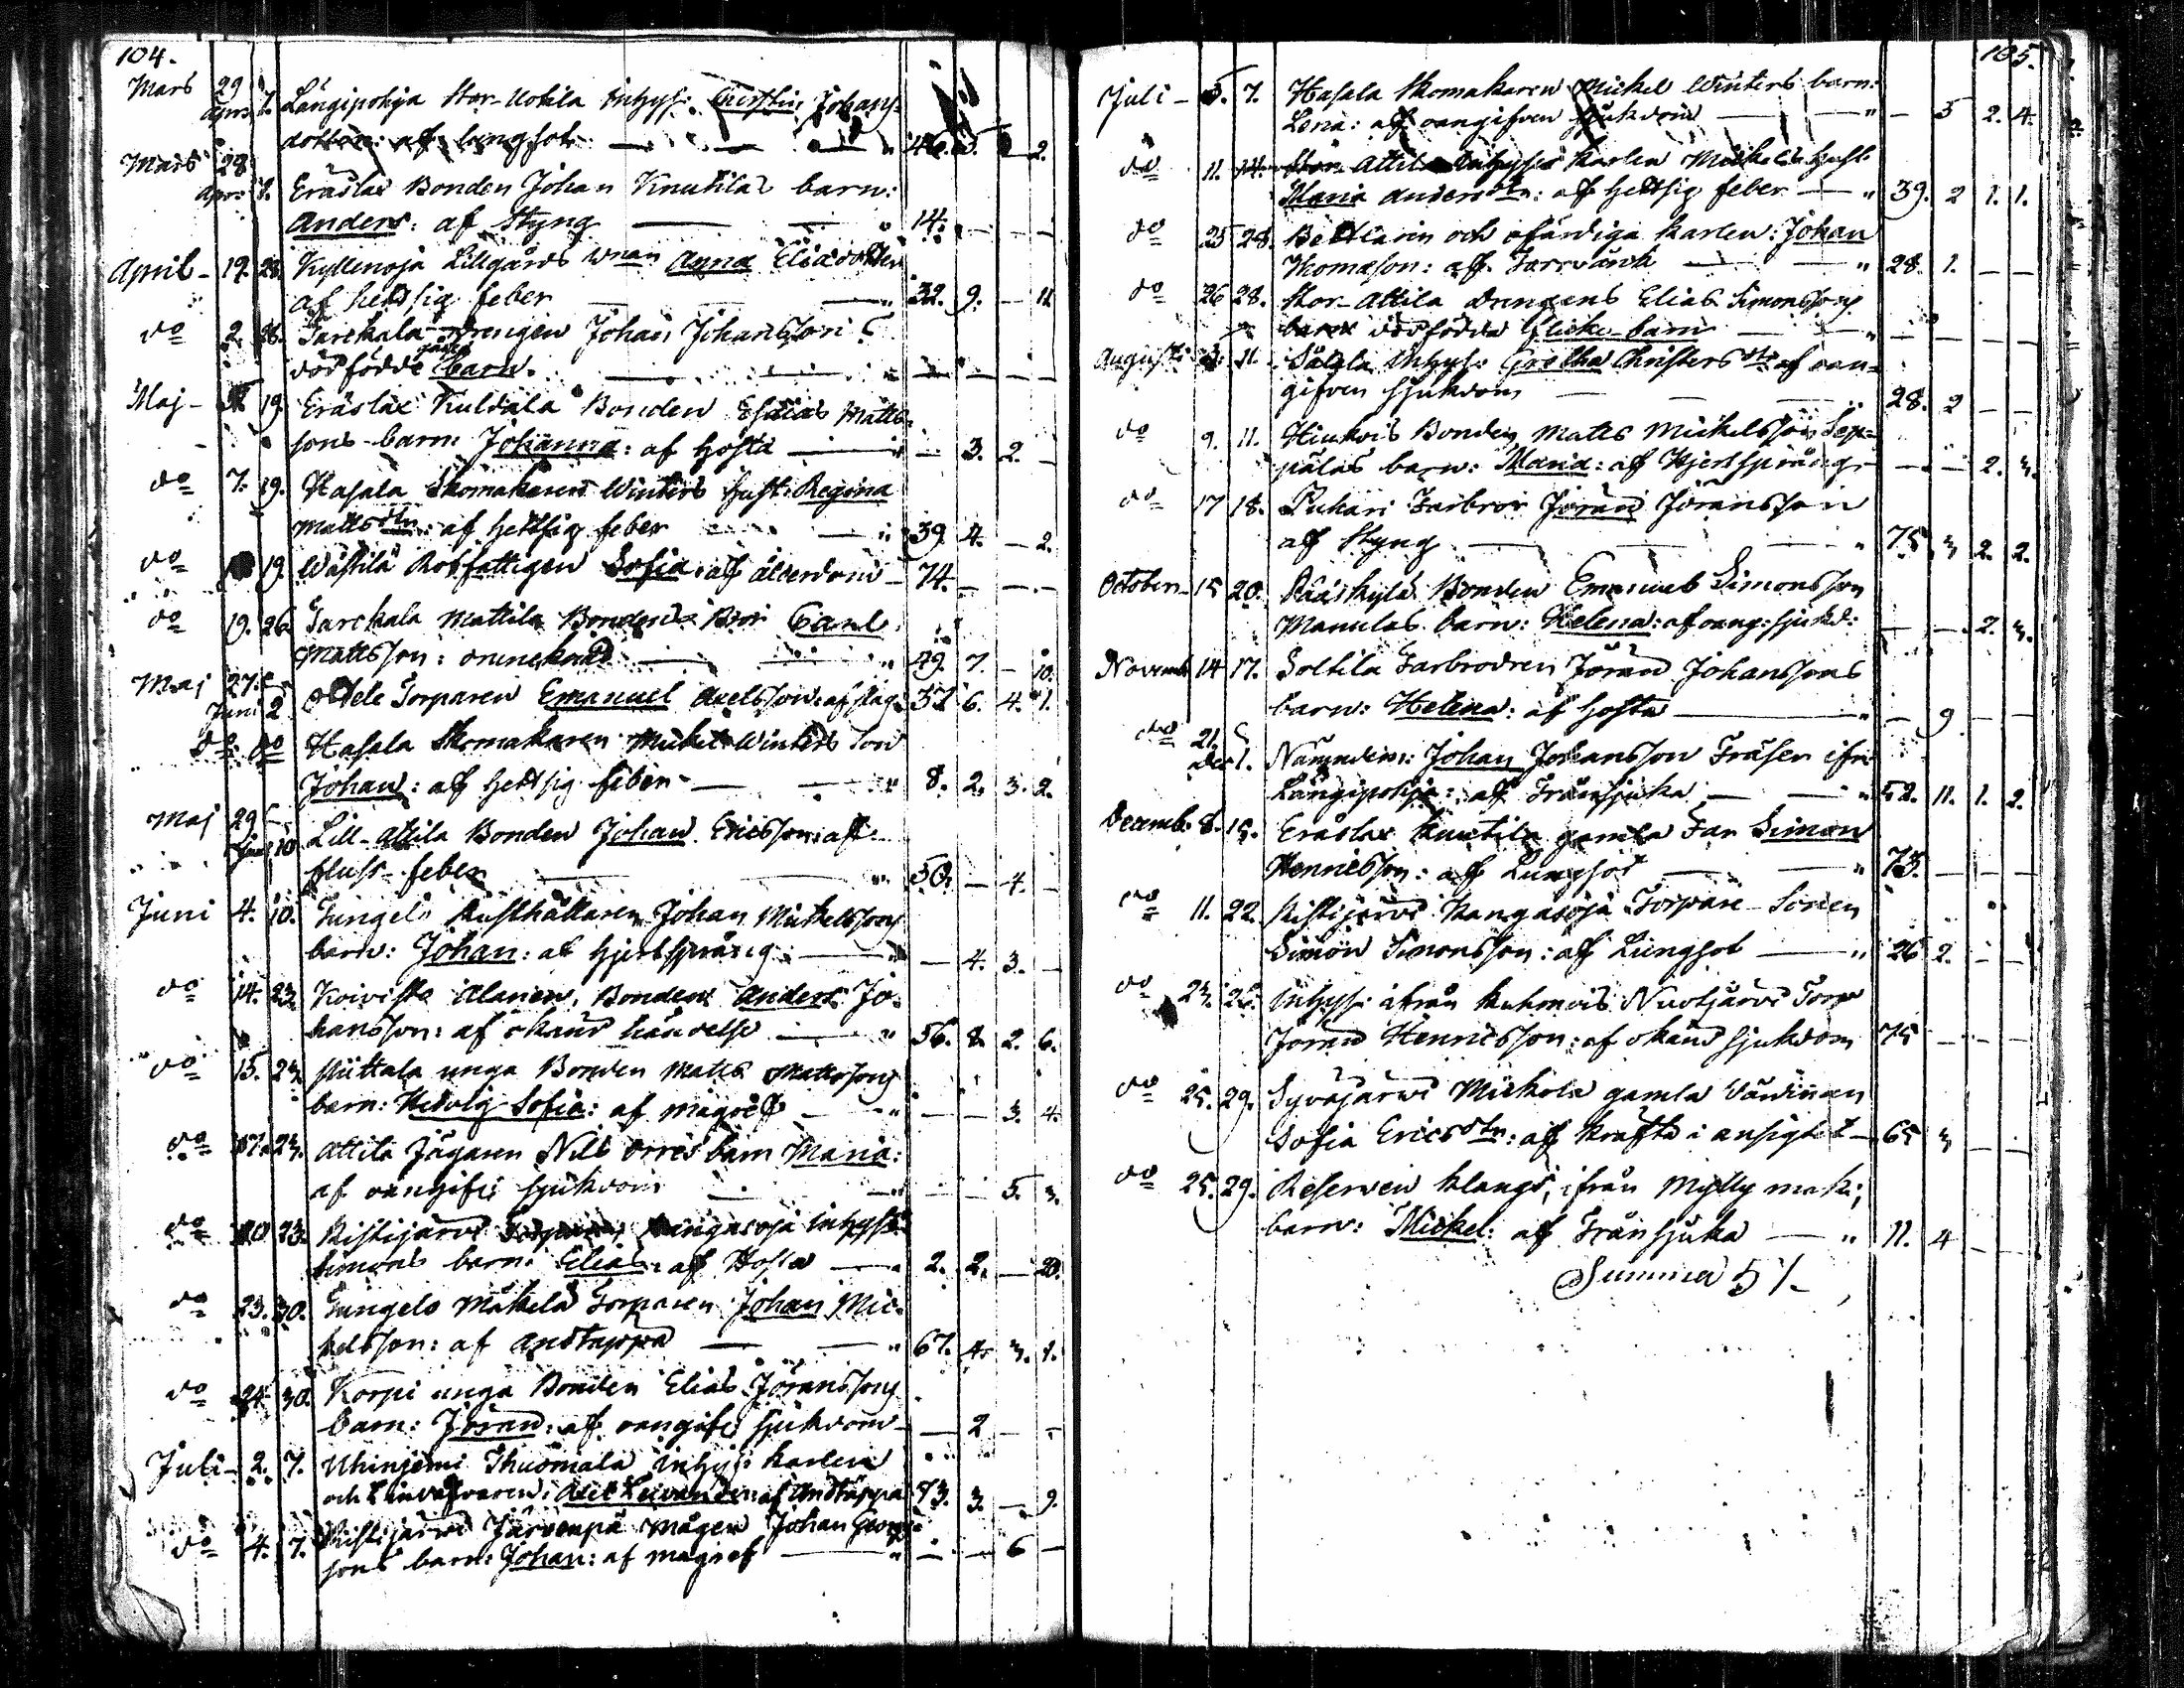 104.
Mars 29
Apr: 7. Långipohja Stor-Uotila Inhyse: Christin Johans-
dotter: af lungsot 46. 5. 2.
Mars 28
Apr: 1. Eräslax Bonden Johan Knutilas barn:
Anders: af Styng 14.
April 19. 28. Kyllenoja Lillgårds Wnan Anna Eliædotter
af hettsig feber 32. 9. 11
do 2. 26. Sarckala Drengen Johan Johanssons
dödfödde barn.
Maj 19. Eräslax Kuldala Bonden Esaias Matts-
sons barn: Johanna: af hosta 3. 2.
do 7. 19. Hasala Skomakaren Winters Hust: Regina
Mattsdtr: af hettsig feber 39. 4. 2.
do 19. Wästilä Rotfattigen Sofia: af ålderdom 74.
do 19. 26. Sarckala Mattila Bondens Bror Carl
Mattsson: okänd 49. 7. 10.
Maj 27.
Juni 2 Torparen Emanuel Axelsson: af slag 37 6. 4. 1.
do do Hasala Skomakaren Mickel Winters Son
Johan: af hettsig feber 8. 2. 3. 2.
Maj 29
Juni 10 Lill-Attila Bonden Johan Ericsson: af
fluss-feber 50. 4.
Juni 4. 10. Rusthållaren Johan Mickelssons
barn: Johan: af hjertsprång 4. 3.
do 14. 23. Koivisto Alanen, Bonden Anders Jo-
hansson: af okänd händelse 56. 8. 2. 6.
do 15. 23. unga Bonden Matts Mattssons
barn: Hedvig Sofia: af magref 3. 4.
do 17. 23. Attila Jägaren Nils Orres barn Maria:
af oangifv: sjukdom 5. 3.
do 20 23. Ristijärvi Kangasoja Inhyse
Simons barn: Elias: af Hosta 2. 2. 20.
do 23. 30. Mäkelä Torparen Johan Mic-
kelsson: af Andtäppa 67. 4. 3. 1.
do 24 30. Korpi unga Bonden Elias Jöranssons
barn: Jöran: af oangifv: sjukdom 2
Juli 2. 7. Uhinjemi Thuomala inhys: karlen
och Linväfvaren: Axel: af Andtäppa 73. 3. 9.
do 4. 7. Ristijärvi Järvenpä Mågen Johan Georgs-
sons barn: Johan: af magref 6
105.
Juli 5. 7. Hasala Skomakaren Mickel Winters barn:
Lena: af oangifven sjukdom 5 2. 4.
do 11. 14. Stor Attila Inhyses Karlen Mickels Hust:
Maria Andersdtr: af hettsig feber 39. 2 1. 1.
do 25 28. Bettlaren och ofärdiga karlen: Johan
Thomasson: af Torrvärk 28. 1.
do 26 28. Stor-Attila Drengens Elias Simonssons
barn dödfödda flicke-barn
Augusti 11. Inhyse: Gretha Christersdtr af oan-
gifven sjukdom 28. 2
do 9. 11. Hiukois Bonden Matts Mickelsson Sep-
pälas barn: Maria: af Hjertsprång 2. 3.
do 17 18. Puhari Farbror Jöran Jöransson
af Styng 75. 3 2. 2.
October 15 20. Bonden Emanuel Simonsson
Manulas barn: Helena: af oang: sjukd: 2. 3.
Novemb 14 17. Soltila Farbrodren Jöran Johanssons
barn: Helena: af hosta 9
do 21.
Dec 1. Nämndem: Johan Johansson Fräsen ifrån
Långipohja: af Trånsjuka 52. 11. 1. 2.
Decemb: 8. 15. Eräslax Knutila gamla Far Simon
Henricsson: af Lungsot 73.
do 11. 22. Ristijärvi Kangasoja Torpare-Sonen
Simon Simonsson: af Lungsot 26 2.
do 23. Inhyse ifrån Kuhmois Nuotjärvi Torp
Jöran Henricsson: af okänd sjukdom 75
do 25. 29. Syväjärvi Mickola gamla Värdinnan
Sofia Ericsdtr: af kräfta i ansigtet 65 3
do 25. 29. Reserven Klangs, ifrån Myllymaki,
barn: Mickel: af Trånsjuka 11. 4
Summa 51.